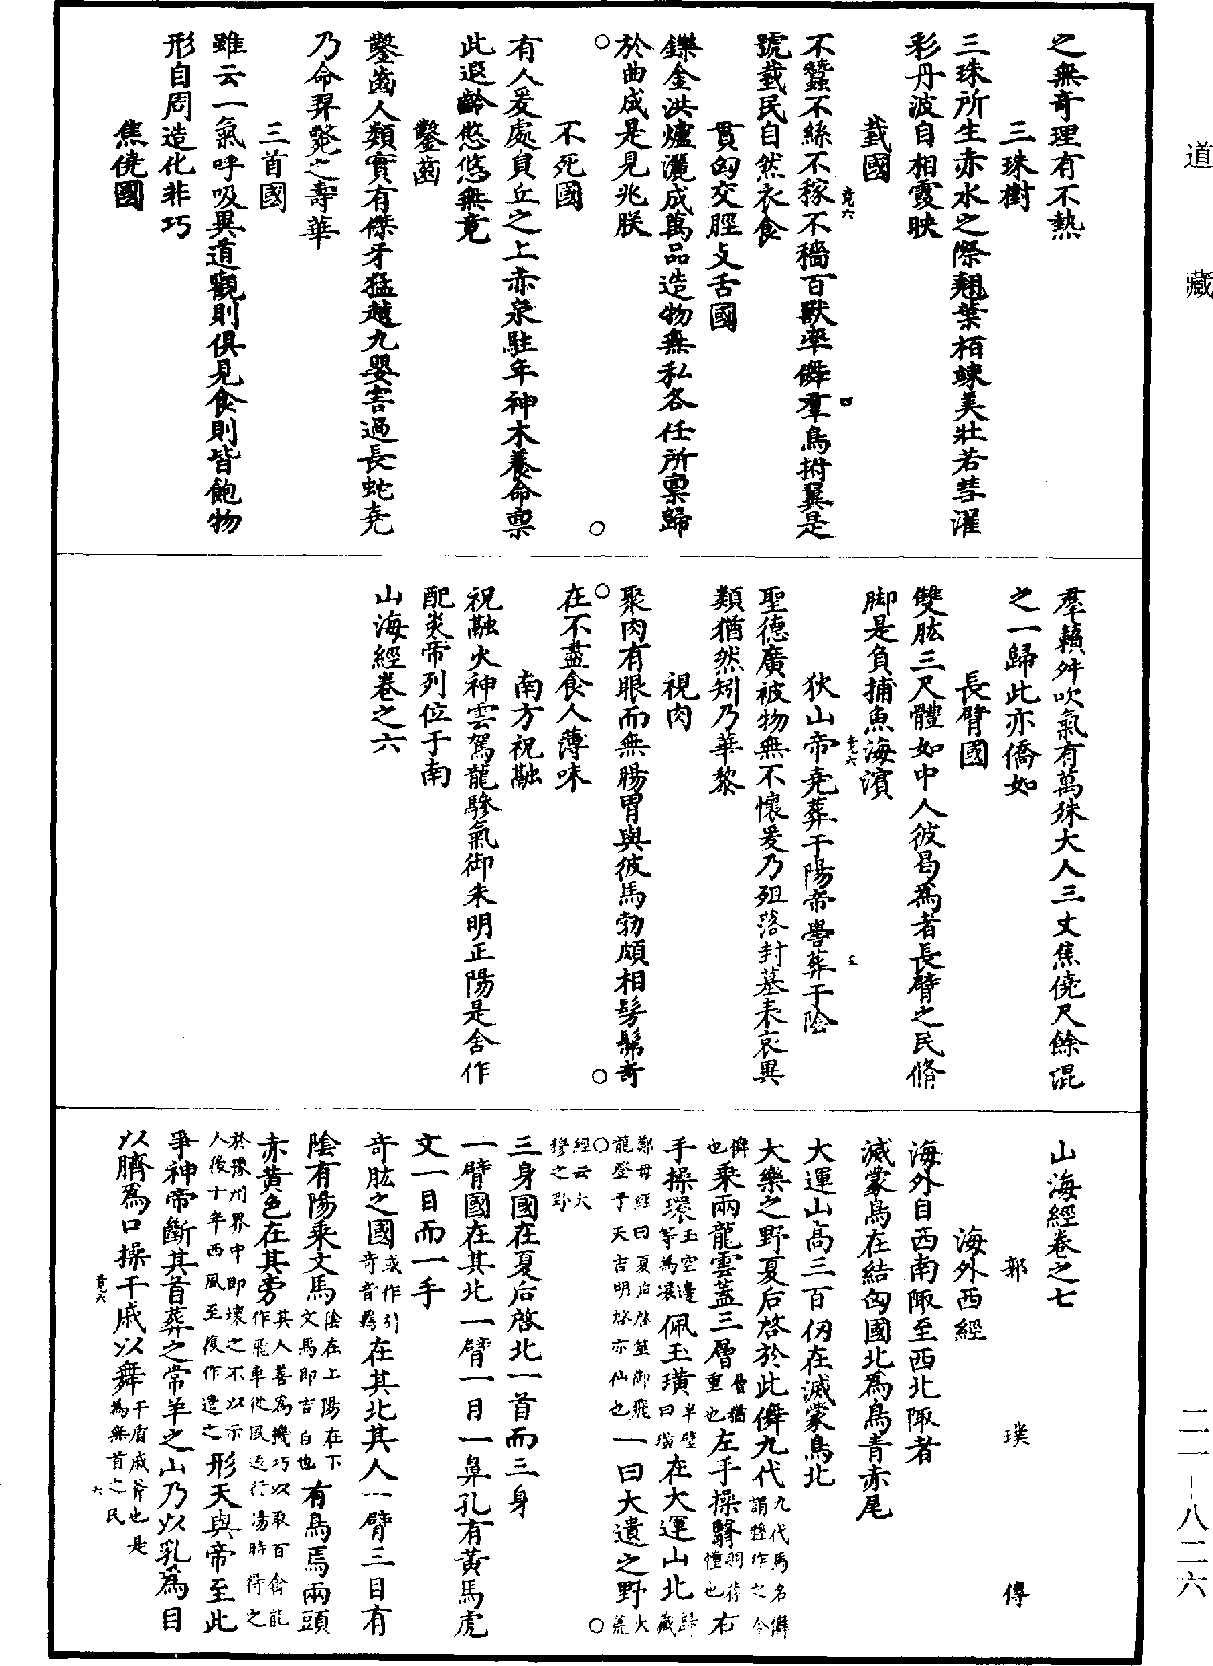 道藏
之無奇理有不熱
三珠樹
三珠所生赤水之際翹葉栢竦美壯若彗濯
彩丹波自相霞映
臷國
不蠶不絲不稼不穡百獸率儛羣鳥拊翼是
號臷民自然衣食
貫匈交脛支舌國
鑠金洪爐灑成萬品造物無私各任所禀歸
於曲成是見兆朕
○ ○
不死國
有人爰處員丘之上赤泉駐年神木養命禀
此遐齡悠悠無竟
鑿齒
鑿齒人類實有傑牙猛越九嬰害過長蛇堯
乃命羿斃之壽華
三首國
雖云一氣呼吸異道觀則俱見食則皆飽物
形自周造化非巧
焦僥國
羣籟舛吹氣有萬殊大人三丈焦僥尺餘混
之一歸此亦僑如
長臂國
雙肱三尺體如中人彼曷為者長臂之民脩
脚是負捕魚海濱
狄山帝堯葬于陽帝嚳葬于陰
聖德廣被物無不懷爰乃殂落封墓表哀異
類猶然矧乃華黎
視肉
聚肉有眼而無腸胃與彼馬勃頗相髣髴奇
○ ○
在不盡食人薄味
南方祝融
祝融火神雲駕龍驂氣御朱明正陽是含作
配炎帝列位于南
山海經卷之六
山海經卷之七
郭璞傳
海外西經
海外自西南陬至西北陬者
滅蒙鳥在結匈國北為鳥青赤尾
大運山高三百仞在滅蒙鳥北
大樂之野夏后啓於此儛九代九代馬名儛謂盤作之令
儛也乘兩龍雲蓋三層層猶重也左手操翳羽葆幢也右
手操環玉空邊等為環佩玉璜半璧曰璜在大運山北歸藏
鄭母經曰夏后啓筮御飛龍登于天吉明啓亦仙也一曰大遺之野大荒
○ ○
經云大穆之野
三身國在夏后啓北一首而三身
一臂國在其北一臂一目一鼻孔有黃馬虎
文一目而一手
奇肱之國或作弘奇音羈在其北其人一臂三目有
陰有陽乘文馬陰在上陽在下文馬即吉良也有鳥焉兩頭
赤黃色在其旁其人善為機巧以取百禽能作飛車從風遠行湯時得之
於豫州界中即壞之不以示人後十年西風至復作遣之形天與帝至此
爭神帝斷其首葬之常羊之山乃以乳為目
以臍為口操干戚以舞干盾戚斧也是為無首之民
二一-八二六